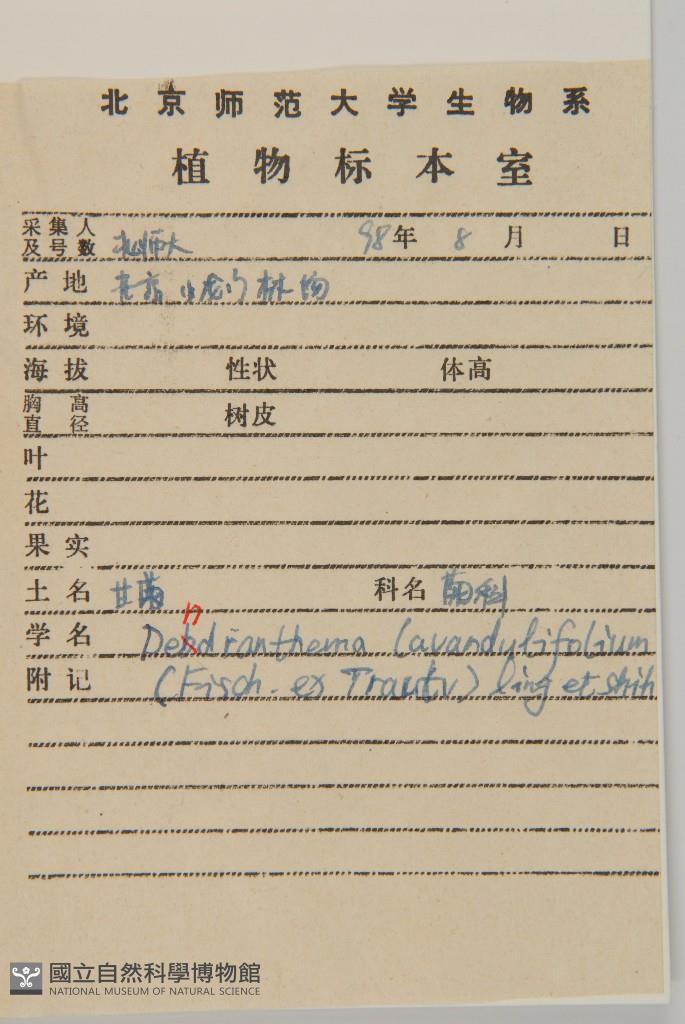 北京师范大学生物系
植物标本室
采集人及号数 北师大 98年 8 月 日
产地 北京 小龙门林场
环境
海拔 性状 体高
胸高直径 树皮
叶
花
果实
土名 甘菊 科名 菊科
n
学名 Dendranthema lavandulifolium
附记 (Fisch. ex Trautv) ling et shih
國立自然科學博物館
NATIONAL MUSEUM OF NATURAL SCIENCE